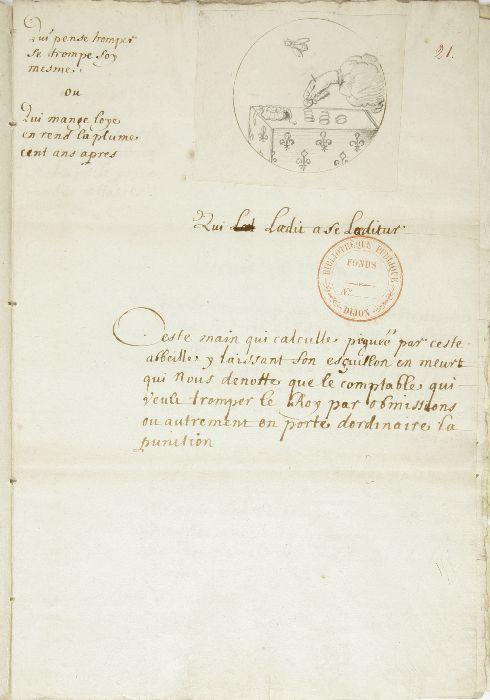 Qui pense tromper
se trompe soy
mesme.
ou
Qui mange loye
en rend la plume
cent ans apres
21.
Qui Lædit a se Læditur.
BIBLIOTHÈQUE PUBLIQUE
FONDS
No
DIJON
Ceste main qui calculle, piquée par ceste
abbeille, y laissant son esguillon en meurt
qui nous denotte que le comptable qui
veule tromper le Roy par obmissions
ou autrement en porte dordinaire la
punition